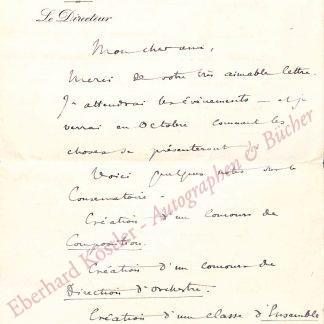 Le Directeur
Mon cher ami,
Merci de votre très aimable lettre.
J'attendrai les évènements — et je
verrai en Octobre comment les
choses se présenteront.
Voici quelques notes sur le
Conservatoire.
Création d'un Concours de
Composition.
Création d'un concours de
Direction d'orchestre.
Création d'une classe d'Ensemble
Eberhard Köstler - Autographen & Bücher